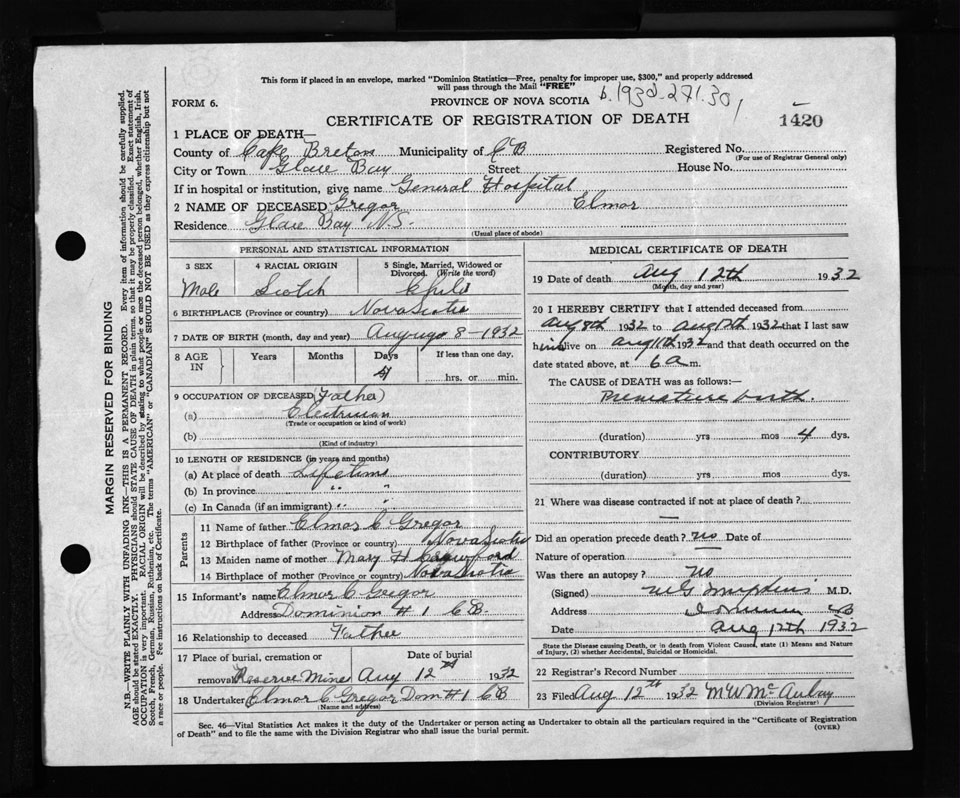 This form if placed in an envelope, marked "Dominion Statistics—Free, penalty for improper use, $300," and properly addressed
will pass through the Mail "FREE"
FORM 6. PROVINCE OF NOVA SCOTIA b.1932-271.301
CERTIFICATE OF REGISTRATION OF DEATH 1420
1 PLACE OF DEATH—
County of Cape Breton Municipality of CB Registered No.
(For use of Registrar General only)
City or Town Glace Bay Street House No.
If in hospital or institution, give name General Hospital
2 NAME OF DECEASED Gregor Elmor
Residence Glace Bay N.S.
(Usual place of abode)
PERSONAL AND STATISTICAL INFORMATION
3 SEX 4 RACIAL ORIGIN 5 Single, Married, Widowed or
Divorced. (Write the word)
Male Scotch Child
6 BIRTHPLACE (Province or country) Nova Scotia
7 DATE OF BIRTH (month, day and year) 8-1932
8 AGE Years Months Days If less than one day,
IN 4 hrs. or min.
9 OCCUPATION OF DECEASED (Father)
(a) Electrician
(Trade or occupation or kind of work)
(b)
(Kind of industry)
10 LENGTH OF RESIDENCE (in years and months)
(a) At place of death Lifetime
(b) In province " "
(c) In Canada (if an immigrant) " "
Parents
11 Name of father Elmor C Gregor
12 Birthplace of father (Province or country) Nova Scotia
13 Maiden name of mother Mary H Crawford
14 Birthplace of mother (Province or country) Nova Scotia
15 Informant's name Elmor C Gregor
Address Dominion #1 CB
16 Relationship to deceased Father
17 Place of burial, cremation or Date of burial
removal Reserve Mines Aug 12th 1932
18 Undertaker Elmor C Gregor Dom #1 CB
(Name and address)
MEDICAL CERTIFICATE OF DEATH
19 Date of death Aug 12th 1932
(Month, day and year)
20 I HEREBY CERTIFY that I attended deceased from
Aug 8th 1932 to Aug 12th 1932 that I last saw
him alive on Aug 11th 1932 and that death occurred on the
date stated above, at 6 a m.
The CAUSE OF DEATH was as follows:—
Premature birth.
(duration) yrs mos 4 dys.
CONTRIBUTORY
(duration) yrs. mos. dys.
21 Where was disease contracted if not at place of death?
—
Did an operation precede death? no Date of
Nature of operation —
Was there an autopsy? no
(Signed) M.D.
Address Dominion CB
Date Aug 12th 1932
State the Disease causing Death, or in death from Violent Causes, state (1) Means and Nature
of Injury, (2) whether Accidental, Suicidal or Homicidal.
22 Registrar's Record Number
23 Filed Aug 12th 1932 M W McAulay
(Division Registrar)
Sec. 46—Vital Statistics Act makes it the duty of the Undertaker or person acting as Undertaker to obtain all the particulars required in the "Certificate of Registration
of Death" and to file the same with the Division Registrar who shall issue the burial permit. (OVER)
MARGIN RESERVED FOR BINDING
N.B.—WRITE PLAINLY WITH UNFADING INK—THIS IS A PERMANENT RECORD. Every item of information should be carefully supplied.
AGE should be stated EXACTLY. PHYSICIANS should STATE CAUSE OF DEATH in plain terms, so that it may be properly classified. Exact statement of
OCCUPATION is very important. RACIAL ORIGIN will be described by stating to what people or race the deceased person belonged, whether English, Irish,
Scotch, French, German, Russian, Ruthenian, etc. The terms "AMERICAN" or "CANADIAN" SHOULD NOT BE USED as they express citizenship but not
a race or people. Fee instructions on back of Certificate.